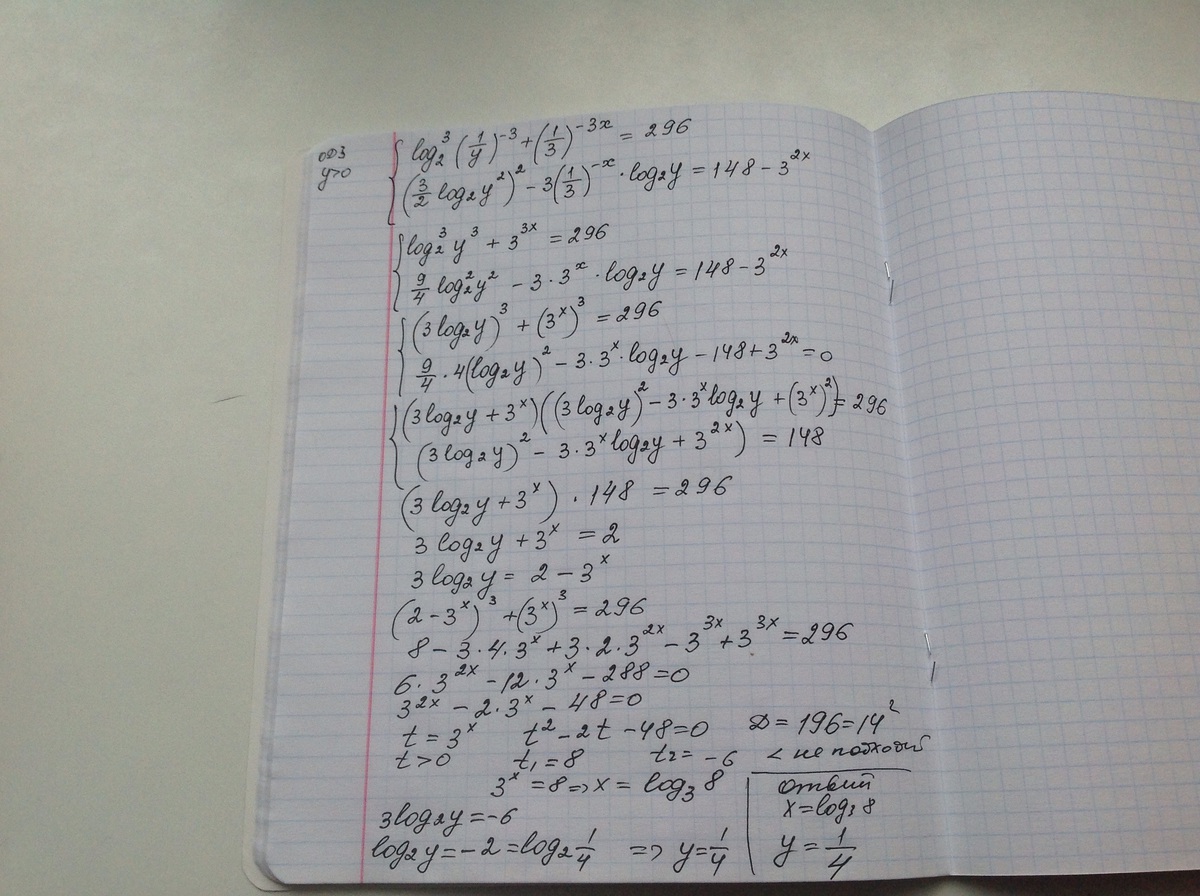 ОДЗ
y>0
{ log₂³(1/y)⁻³ + (1/3)^(-3x) = 296
{ (3/2 log₂y²)² - 3(1/3)^(-x) · log₂y = 148 - 3^(2x)
{ log₂³y³ + 3^(3x) = 296
{ 9/4 log₂²y² - 3·3^x · log₂y = 148 - 3^(2x)
{ (3log₂y)³ + (3^x)³ = 296
{ 9/4 · 4(log₂y)² - 3·3^x · log₂y - 148 + 3^(2x) = 0
{ (3log₂y + 3^x)((3log₂y)² - 3·3^x log₂y + (3^x)²) = 296
{ (3log₂y)² - 3·3^x log₂y + 3^(2x)) = 148
(3log₂y + 3^x) · 148 = 296
3log₂y + 3^x = 2
3log₂y = 2 - 3^x
(2 - 3^x)³ + (3^x)³ = 296
8 - 3·4·3^x + 3·2·3^(2x) - 3^(3x) + 3^(3x) = 296
6·3^(2x) - 12·3^x - 288 = 0
3^(2x) - 2·3^x - 48 = 0
t = 3^x t² - 2t - 48 = 0 D = 196 = 14²
t > 0 t₁ = 8 t₂ = -6 < не подходит
3^x = 8 => x = log₃8
3log₂y = -6
log₂y = -2 = log₂ 1/4 => y = 1/4
ответ
x = log₃8
y = 1/4